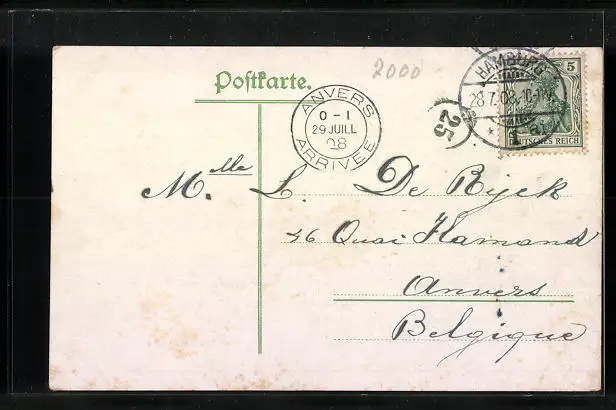 2000
Postkarte.
HAMBURG
28.7.08.10-11
* 1 *
5
DEUTSCHES REICH
ANVERS
0-1
29 JUILL
08
ARRIVEE
25
Mlle L. De Rijck
46 Quai Flamand
Anvers
Belgique